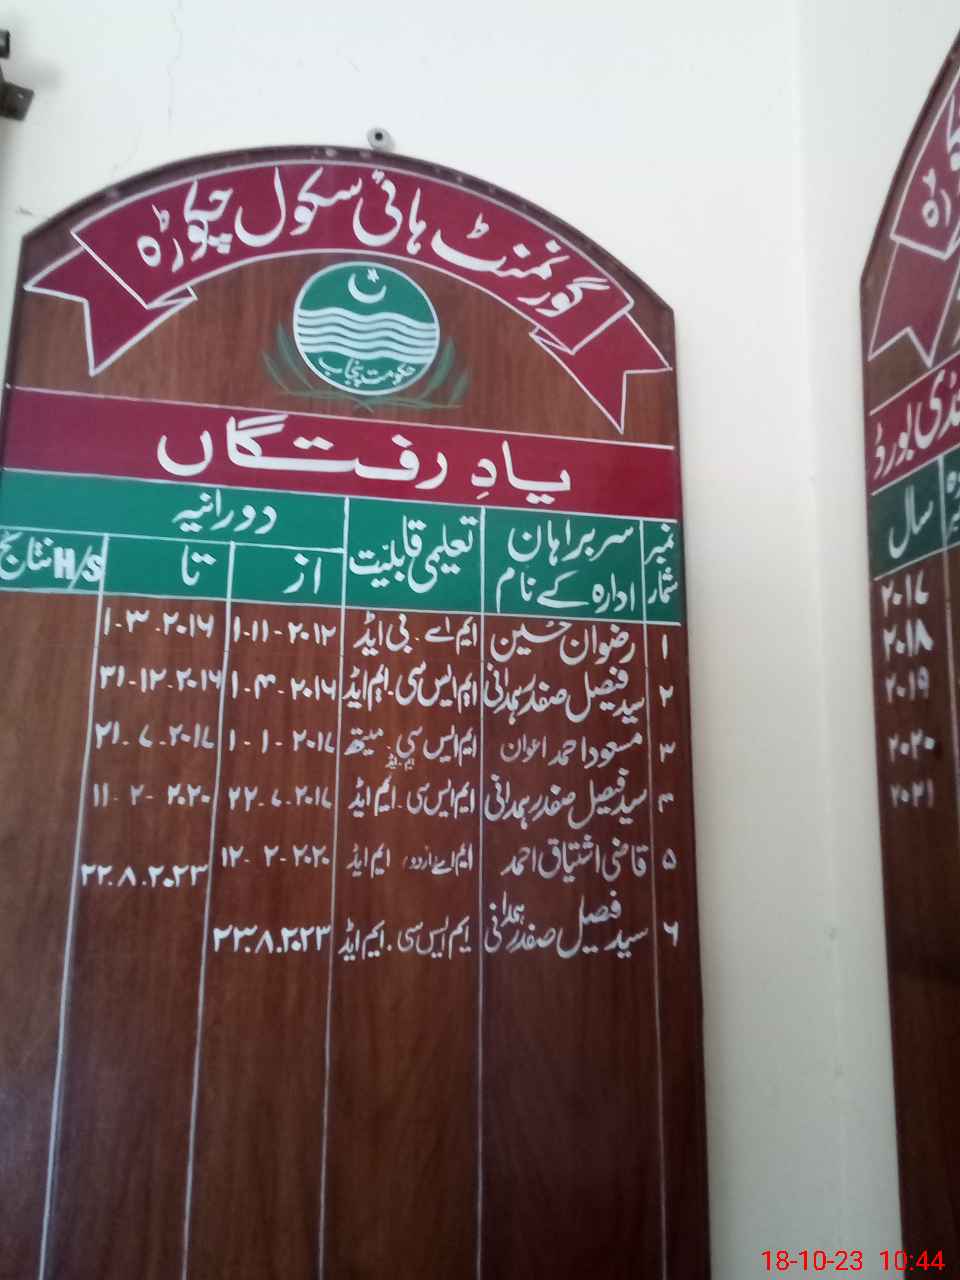 گورنمنٹ ہائی سکول چکوڑہ
حکومت پنجاب
یادِ رفتگاں
نمبر شمار سربراہان ادارہ کے نام تعلیمی قابلیّت دورانیہ از تا H/S نتائج
۱ رضوان حُسین ایم اے۔ بی ایڈ ۱-۱۱-۲۰۱۲ ۱-۳-۲۰۱۶
۲ سید فیصل صفدر ہمدانی ایم ایس سی۔ ایم ایڈ ۱-۴-۲۰۱۶ ۳۱-۱۲-۲۰۱۶
۳ مسعود احمد اعوان ایم ایس سی۔ میتھ ایم۔ایڈ ۱-۱-۲۰۱۷ ۲۱-۷-۲۰۱۷
۴ سید فیصل صفدر ہمدانی ایم ایس سی۔ ایم ایڈ ۲۲-۷-۲۰۱۷ ۱۱-۲-۲۰۲۰
۵ قاضی اشتیاق احمد ایم اے (اردو) ایم ایڈ ۱۲-۲-۲۰۲۰ ۲۲.۸.۲۰۲۳
۶ سید فیصل صفدر ہمدانی ایم ایس سی۔ ایم ایڈ ۲۳.۸.۲۰۲۳
بورڈ
سال
۲۰۱۷
۲۰۱۸
۲۰۱۹
۲۰۲۰
۲۰۲۱
18-10-23 10:44